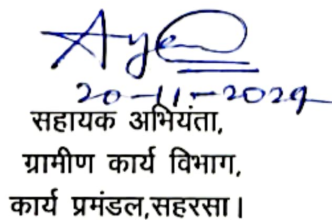 20-11-2024
सहायक अभियंता,
ग्रामीण कार्य विभाग,
कार्य प्रमंडल,सहरसा।